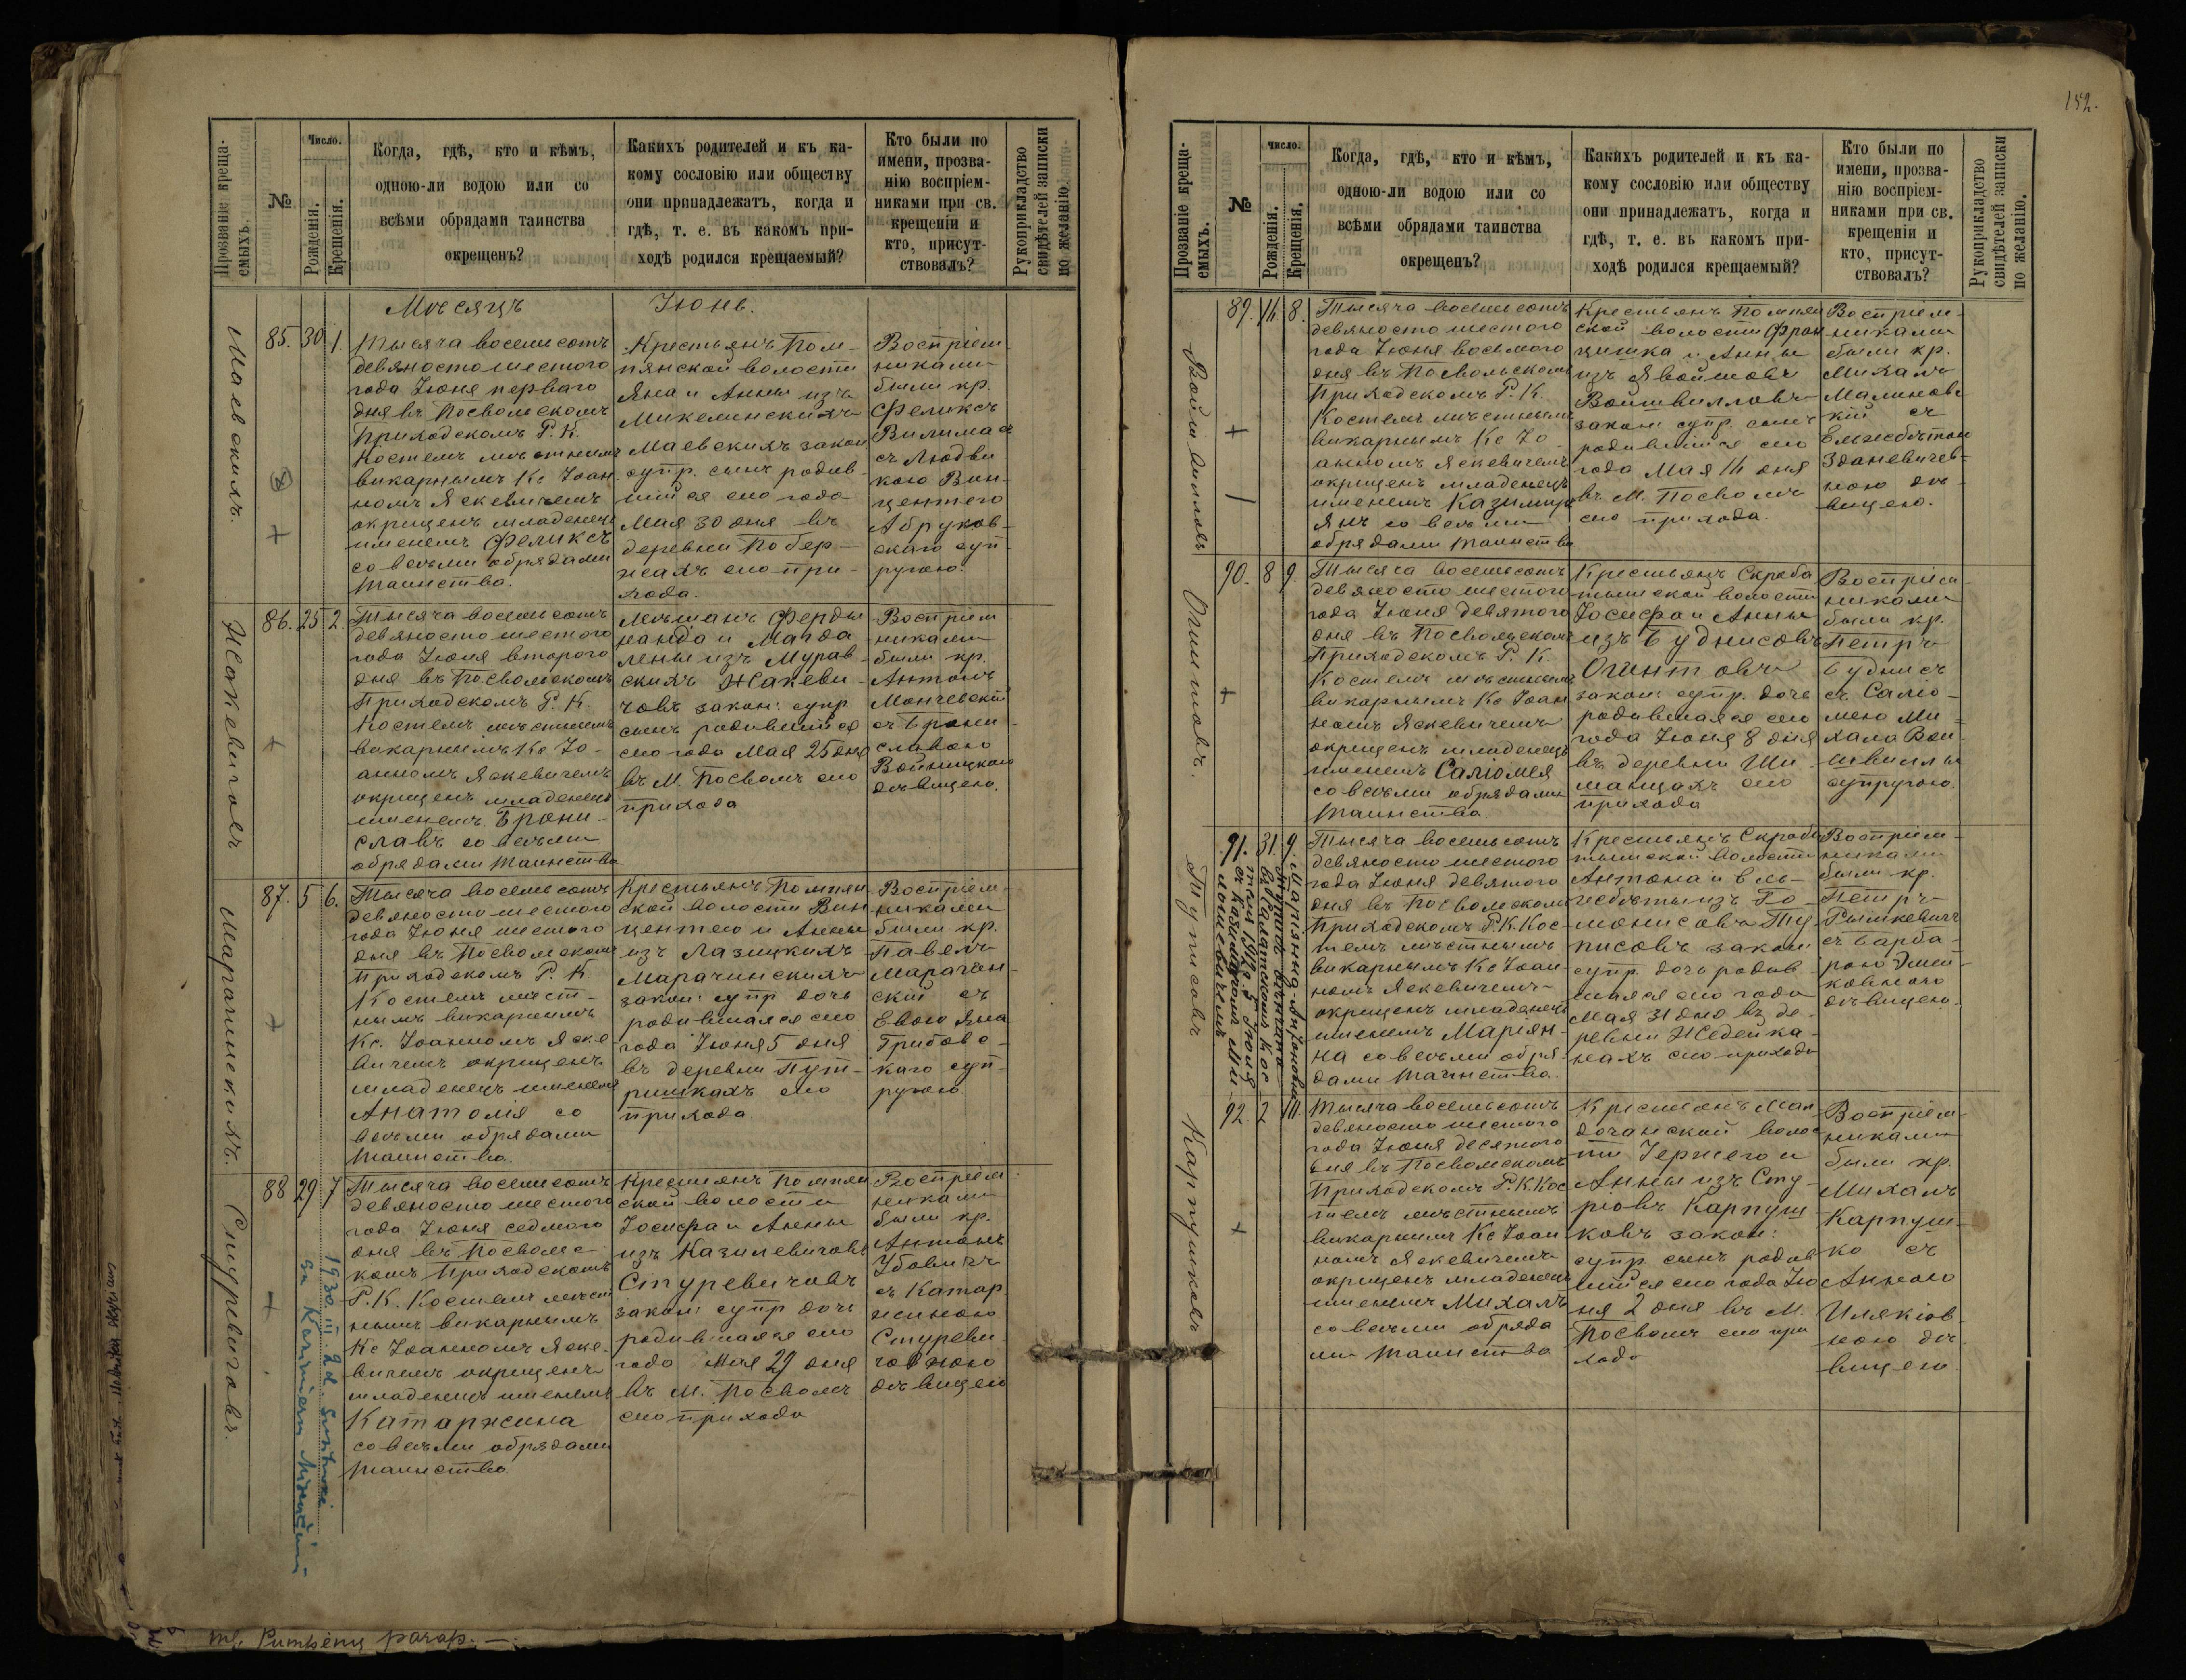 152.
Прозваніе креща-
емыхъ.
№
Число.
Рожденія.
Крещенія.
Когда, гдѣ, кто и кѣмъ,
одною-ли водою или со
всѣми обрядами таинства
окрещенъ?
Какихъ родителей и къ ка-
кому сословію или обществу
они принадлежатъ, когда и
гдѣ, т. е. въ какомъ при-
ходѣ родился крещаемый?
Кто были по
имени, прозва-
нію воспріем-
никами при св.
крещеніи и
кто, присут-
ствовалъ?
Рукоприкладство
свидѣтелей записки
по желанію.
Мѣсяцъ Іюнь.
Маевскихъ.
85. 30 1.
Тысяча восемьсотъ
девяносто шестого
года Іюня перваго
дня въ Посвольскомъ
Приходскомъ Р. К.
Костелѣ мѣстнымъ
викарнымъ Кс Іоан
номъ Яскевичемъ
окрещенъ младенецъ
именемъ Феликсъ
со всѣми обрядами
таинства.
Крестьянъ Пом-
пянской волости
Яна и Анны изъ
Микелинскихъ
Маевскихъ закон
супр. сынъ родив-
шійся сего года
Мая 30 дня въ
деревни Побер-
жахъ сего при-
хода.
Воспріем
никами
были кр.
Феликсъ
Вилимас
съ Людви
кою Вин-
центего
Абруков-
скаго суп
ругою.
Жакевичовъ
86. 25 2.
Тысяча восемьсотъ
девяносто шестого
года Іюня второго
дня въ Посвольскомъ
Приходскомъ Р. К.
Костелѣ мѣстнымъ
викарнымъ Кс Іо-
анномъ Яскевичемъ
окрещенъ младенецъ
именемъ Брони-
славъ со всѣми
обрядами таинства
Мѣщанъ Ферди
нанда и Магда
лены изъ Мурав
скихъ Жакеви-
човъ закон: супр
сынъ родившійся
сего года Мая 25 дня
въ М. Посволѣ сего
прихода
Воспріем
никами
были кр.
Антонъ
Мончевскій
съ Брони
славою
Войницкою
дѣвицею.
Марачинскихъ.
87. 5 6.
Тысяча восемьсотъ
девяносто шестого
года Іюня шестого
дня въ Посвольскомъ
Приходскомъ Р. К
Костелѣ мѣст-
нымъ викарнымъ
Кс. Іоанномъ Яске
вичемъ окрещенъ
младенецъ именемъ
Анатолія со
всѣми обрядами
таинства.
Крестьянъ Помпян
ской волости Вин
центего и Анны
изъ Лазицкихъ
Марачинскихъ
закон: супр дочь
родившаяся сего
года Іюня 5 дня
въ деревни Пут-
ришкахъ сего
прихода.
Воспріем-
никами
были кр.
Павелъ
Марачин-
скій съ
Евою Яна
Грибовс-
каго суп-
ругою.
Стуревичовъ.
88 29 7
1930.II.2 d. Susituokė
su Kazimieru
Тысяча восемьсотъ
девяносто шестого
года Іюня седмого
дня въ Посвольс-
комъ Приходскомъ
Р. К. Костелѣ мѣст
нымъ викарнымъ
Кс Іоанномъ Яске-
вичемъ окрещенъ
младенецъ именемъ
Катаржина
со всѣми обрядами
таинства
Крестьянъ Помпян
ской волости
Іосифа и Анны
изъ Казилевичовъ
Стуревичовъ
закон: супр дочь
родившаяся сего
года Мая 29 дня
въ М. Посволѣ
сего прихода
Воспріем
никами
были кр.
Антонъ
Убовичъ
съ Катар
жиною
Стуреви
човною
дѣвицею
mf. Pumpėnų parap. —
Прозваніе креща-
емыхъ.
№
Число.
Рожденія.
Крещенія.
Когда, гдѣ, кто и кѣмъ,
одною-ли водою или со
всѣми обрядами таинства
окрещенъ?
Какихъ родителей и къ ка-
кому сословію или обществу
они принадлежатъ, когда и
гдѣ, т. е. въ какомъ при-
ходѣ родился крещаемый?
Кто были по
имени, прозва-
нію воспріем-
никами при св.
крещеніи и
кто, присут-
ствовалъ?
Рукоприкладство
свидѣтелей записки
по желанію.
Войшвилловъ
89. 14. 8.
Тысяча восемьсотъ
девяносто шестого
года Іюня восьмого
дня въ Посвольскомъ
Приходскомъ Р. К.
Костелѣ мѣстнымъ
викарнымъ Кс Іо-
анномъ Яскевичемъ
окрещенъ младенецъ
именемъ Казимиръ
Янъ со всѣми
обрядами таинства
Крестьянъ Помпян
ской волости Фран
цишка и Анны
изъ Явойшовъ
Войшвилловъ
закон: супр. сынъ
родившійся сего
года Мая 14 дня
въ М. Посволѣ
сего прихода.
Воспріем-
никами
были кр.
Михалъ
Малиновс
кій съ
Ельжбѣтою
Зданевичев-
ною дѣ-
вицею.
Огинтовъ.
90. 8 9.
Тысяча восемьсотъ
девяносто шестого
года Іюня девятого
дня въ Посвольскомъ
Приходскомъ Р. К.
Костелѣ мѣстнымъ
викарнымъ Кс Іоан
номъ Яскевичемъ
окрещенъ младенецъ
именемъ Саліомея
со всѣми обрядами
таинства
Крестьянъ Скроба
тышской волости
Іосифа и Анны
изъ Буднисовъ
Огинтовъ
закон: супр. дочь
родившаяся сего
года Іюня 8 дня
въ деревни Ши-
манцахъ сего
прихода
Воспріем
никами
были кр.
Петръ
Буднисъ
съ Саліо-
мею Ми-
хала Вой-
швиллы
супругою.
Тутисовъ
91. 31 9.
Тысяча восемьсотъ
девяносто шестого
года Іюня девятого
дня въ Посвольскомъ
Приходскомъ Р. К. Кос-
телѣ мѣстнымъ
викарнымъ Кс Іоан-
номъ Яскевичемъ
окрещенъ младенецъ
именемъ Маріян-
на со всѣми обря-
дами таинства.
Крестьянъ Скроба
тышской волости
Антона и Ель-
жбѣты изъ Го-
монисовъ Ту
писовъ закон
супр. дочь родив-
шаяся сего года
Мая 31 дня въ де-
ревни Жедейка-
няхъ сего прихода
Воспріем-
никами
были кр.
Петръ
Рымкевичъ
съ Барба-
рою
дѣвицею.
Карпушковъ
92. 2 10.
Тысяча восемьсотъ
девяносто шестого
года Іюня десятого
дня въ Посвольскомъ
Приходскомъ Р. К. Кос
телѣ мѣстнымъ
викарнымъ Кс Іоан
номъ Яскевичемъ
окрещенъ младенецъ
именемъ Михалъ
со всѣми обряда
ми таинства
Крестьянъ
волос
ти Іержего и
Анны изъ Сту-
ріовъ Карпуш
ковъ закон:
супр. сынъ родив
шійся сего года Ію
ня 2 дня въ М.
Посволѣ сего при
хода
Воспріем-
никами
были кр.
Михалъ
Карпуш-
ко съ
Анною
Илякіов-
ною дѣ-
вицею